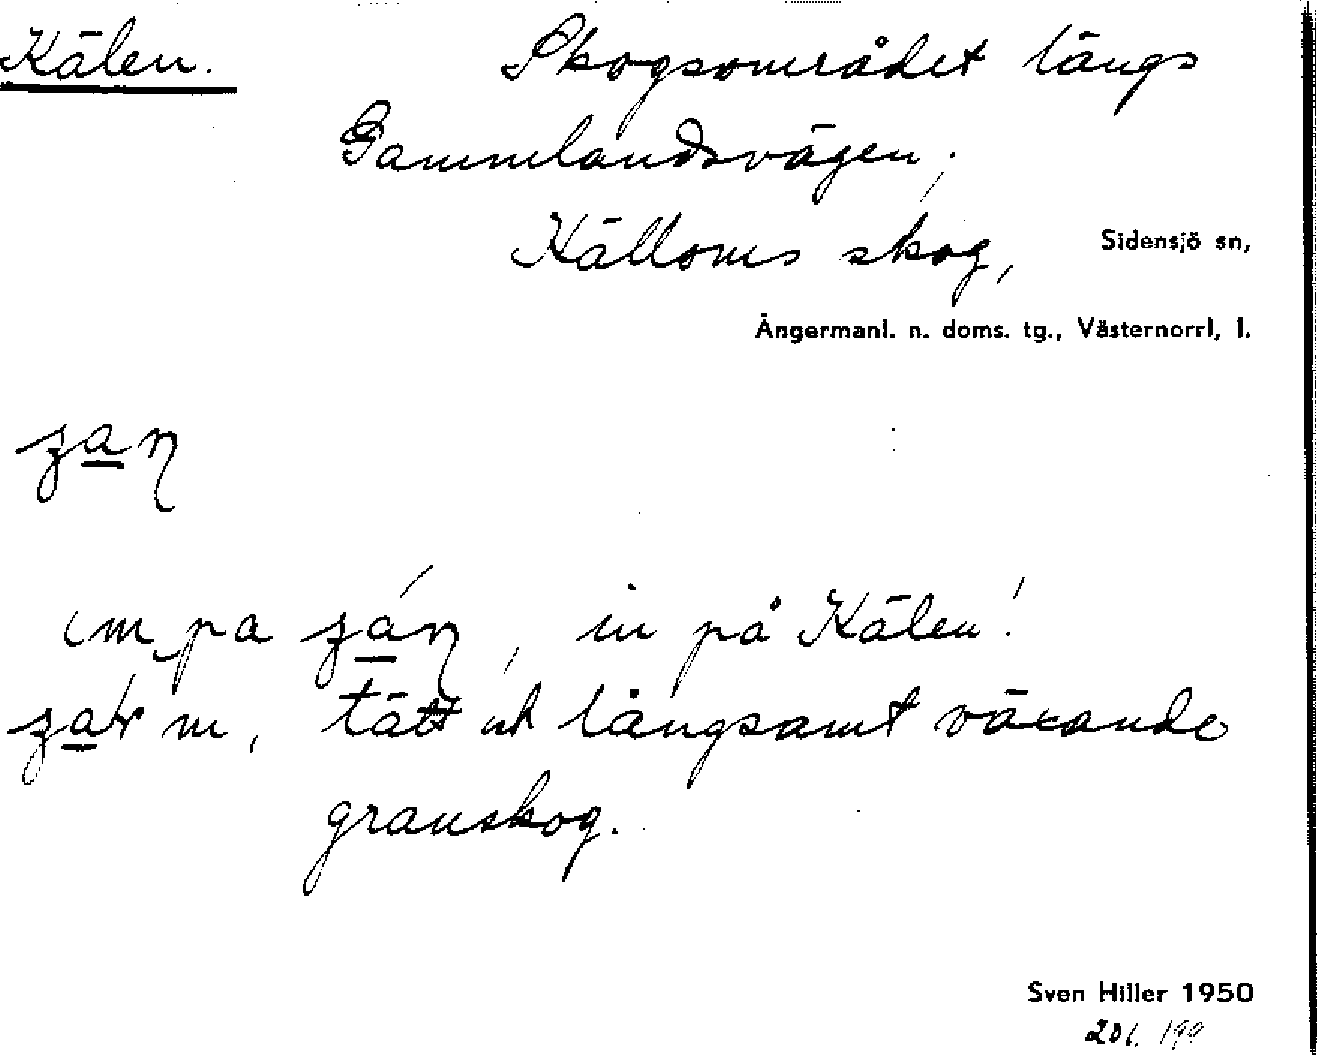 Kälen. Skogsområdet längs
Gammlandsvägen;
Källoms skog, Sidensjö sn,
Ångermanl. n. doms. tg., Västernorrl, l.
in på Kälen!
m, tätt och långsamt växande
granskog.
Sven Hiller 1950